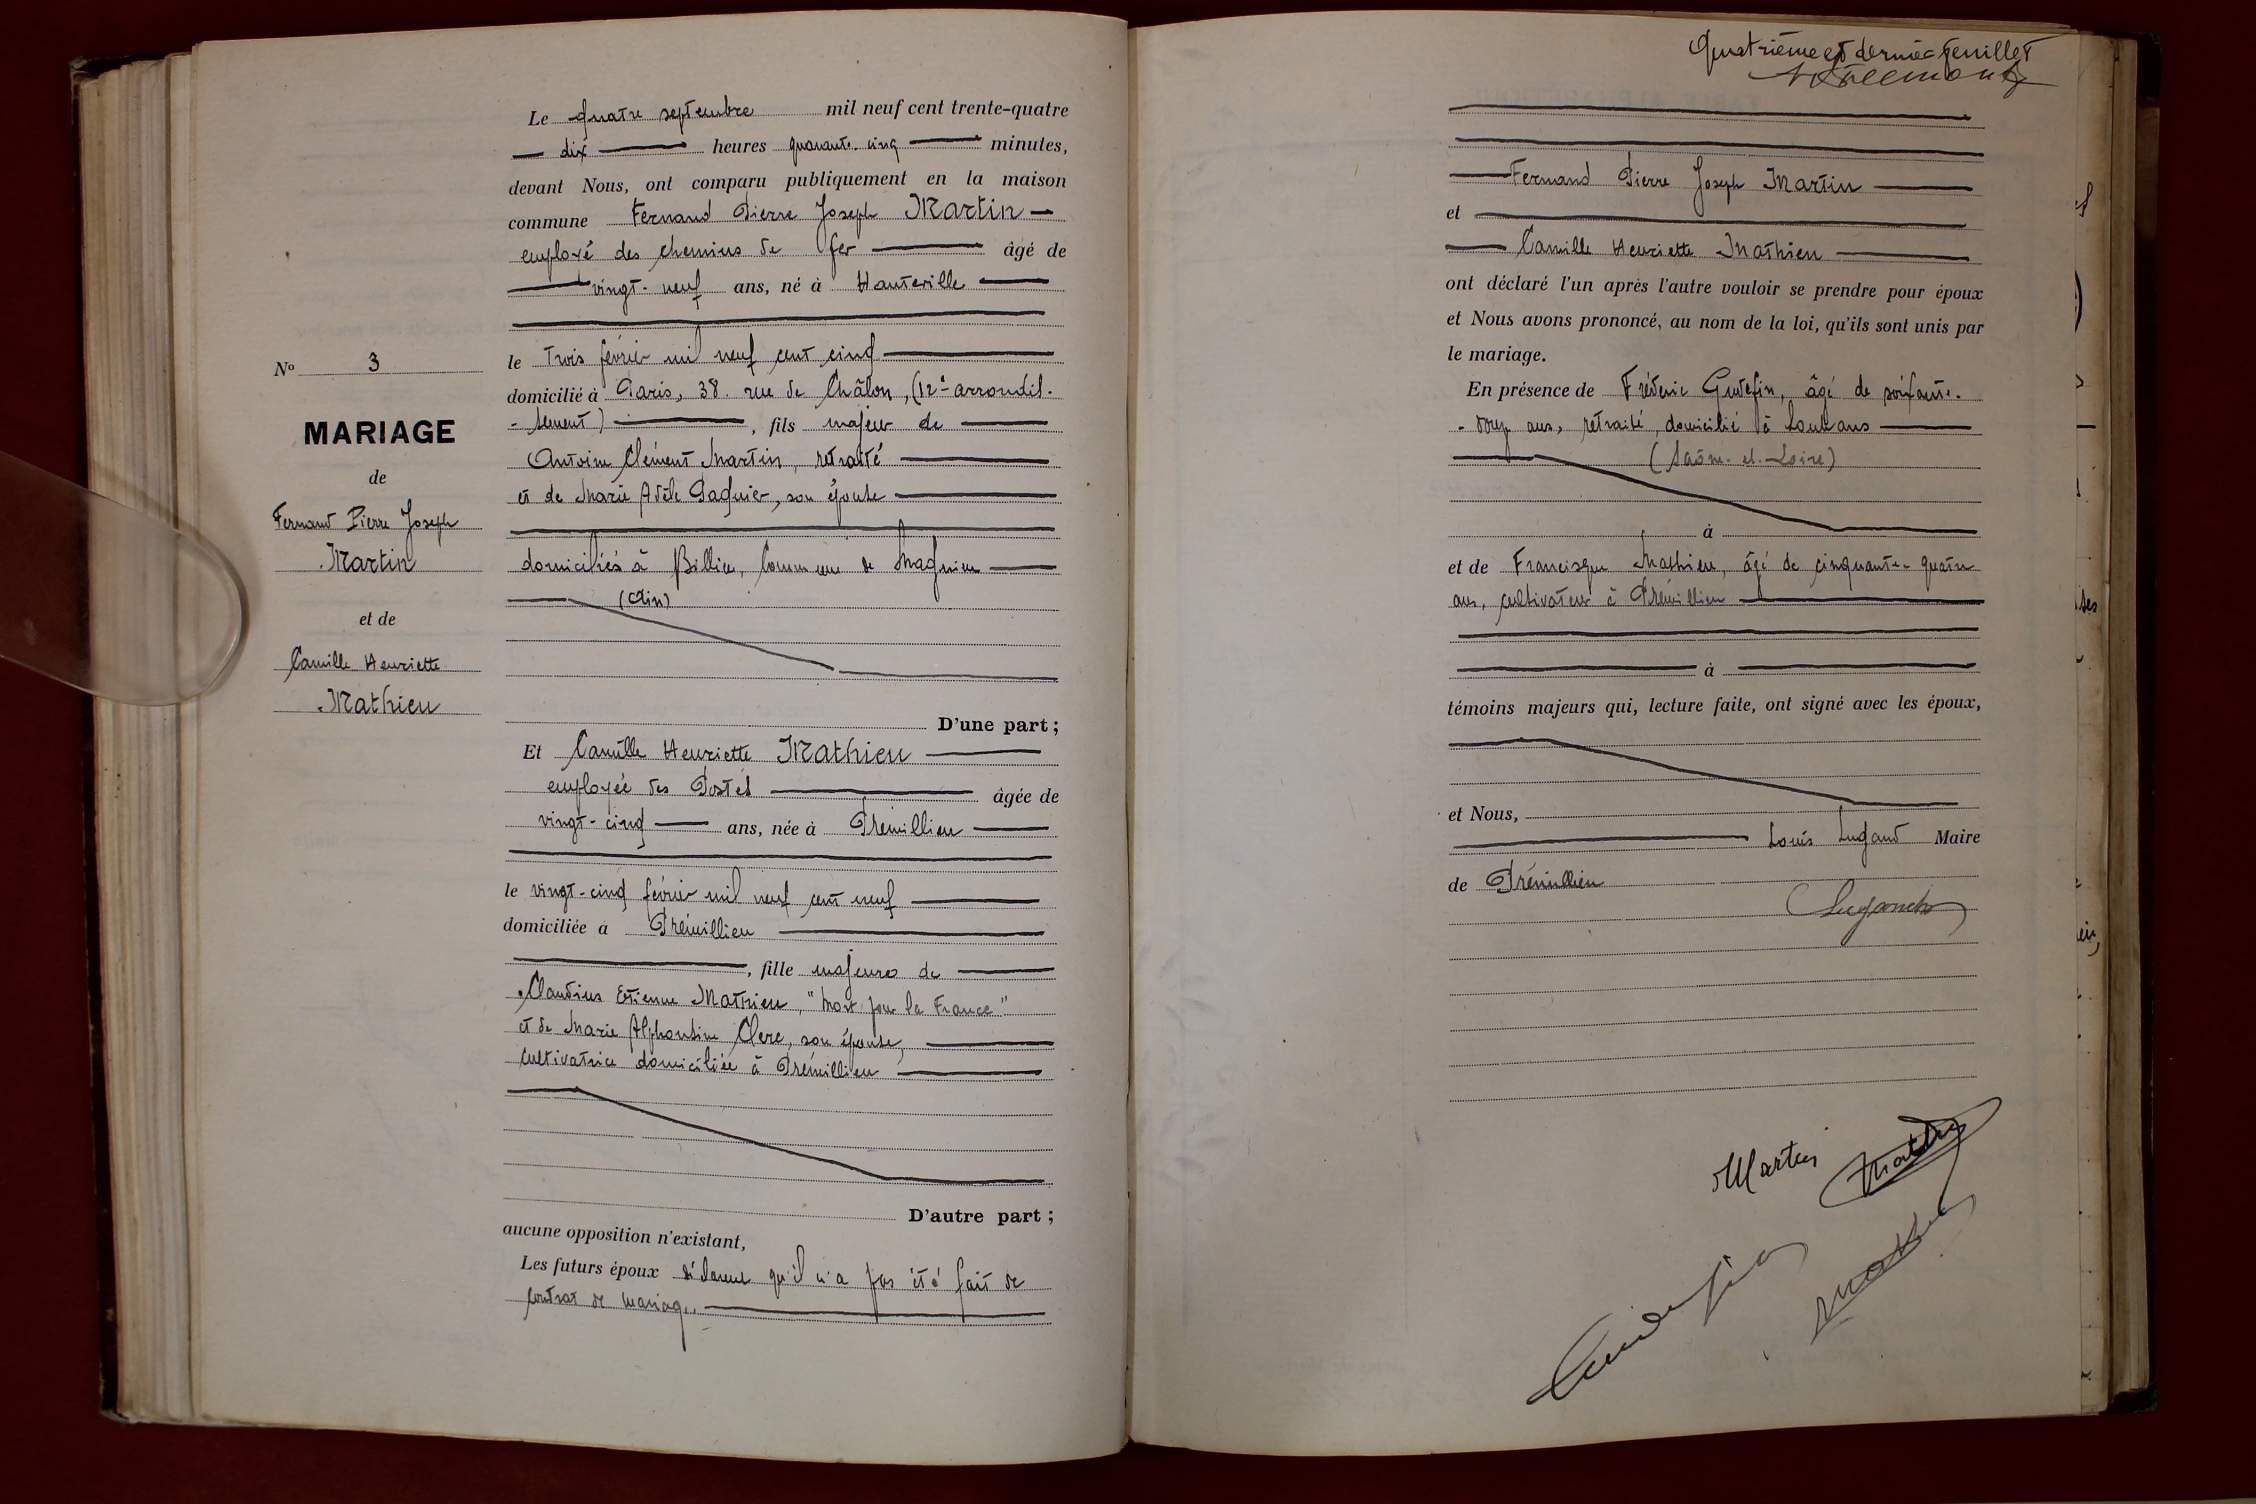 Nº 3
MARIAGE
de
Fernand Pierre Joseph
Martin
et de
Camille Henriette
Mathieu
Le quatre septembre mil neuf cent trente-quatre
dix heures quarante-cinq minutes,
devant Nous, ont comparu publiquement en la maison
commune Fernand Pierre Joseph Martin
employé des chemins de fer âgé de
vingt-neuf ans, né à Hauteville
le trois février mil neuf cent cinq
domicilié à Paris, 38 rue de Châlon, (12e arrondis-
-sement), fils majeur de
Antoine Clément Martin, retraité
et de Marie Adèle Pasquier, son épouse
domiciliés à Billieu, Commune de Magnieu
(Ain)
D'une part ;
Et Camille Henriette Mathieu
employée des Postes âgée de
vingt-cinq ans, née à Prémillieu
le vingt-cinq février mil neuf cent neuf
domiciliée à Prémillieu
, fille majeure de
Claudius Etienne Mathieu, "Mort pour la France"
et de Marie Alphonsine Clerc, son épouse,
cultivatrice domiciliée à Prémillieu
D'autre part ;
aucune opposition n'existant,
Les futurs époux déclarent qu'il n'a pas été fait de
contrat de mariage.
Quatrième et dernier feuillet
Fernand Pierre Joseph Martin
et
Camille Henriette Mathieu
ont déclaré l'un après l'autre vouloir se prendre pour époux
et Nous avons prononcé, au nom de la loi, qu'ils sont unis par
le mariage.
En présence de Fréderic Gudefin, âgé de soixante-
-douze ans, retraité, domicilié à Louhans
(Saône-et-Loire)
à
et de Francisque Mathieu, âgé de cinquante-quatre
ans, cultivateur à Prémillieu
à
témoins majeurs qui, lecture faite, ont signé avec les époux,
et Nous,
Louis Lugand Maire
de Prémillieu
Lugand
Martin
Mathieu